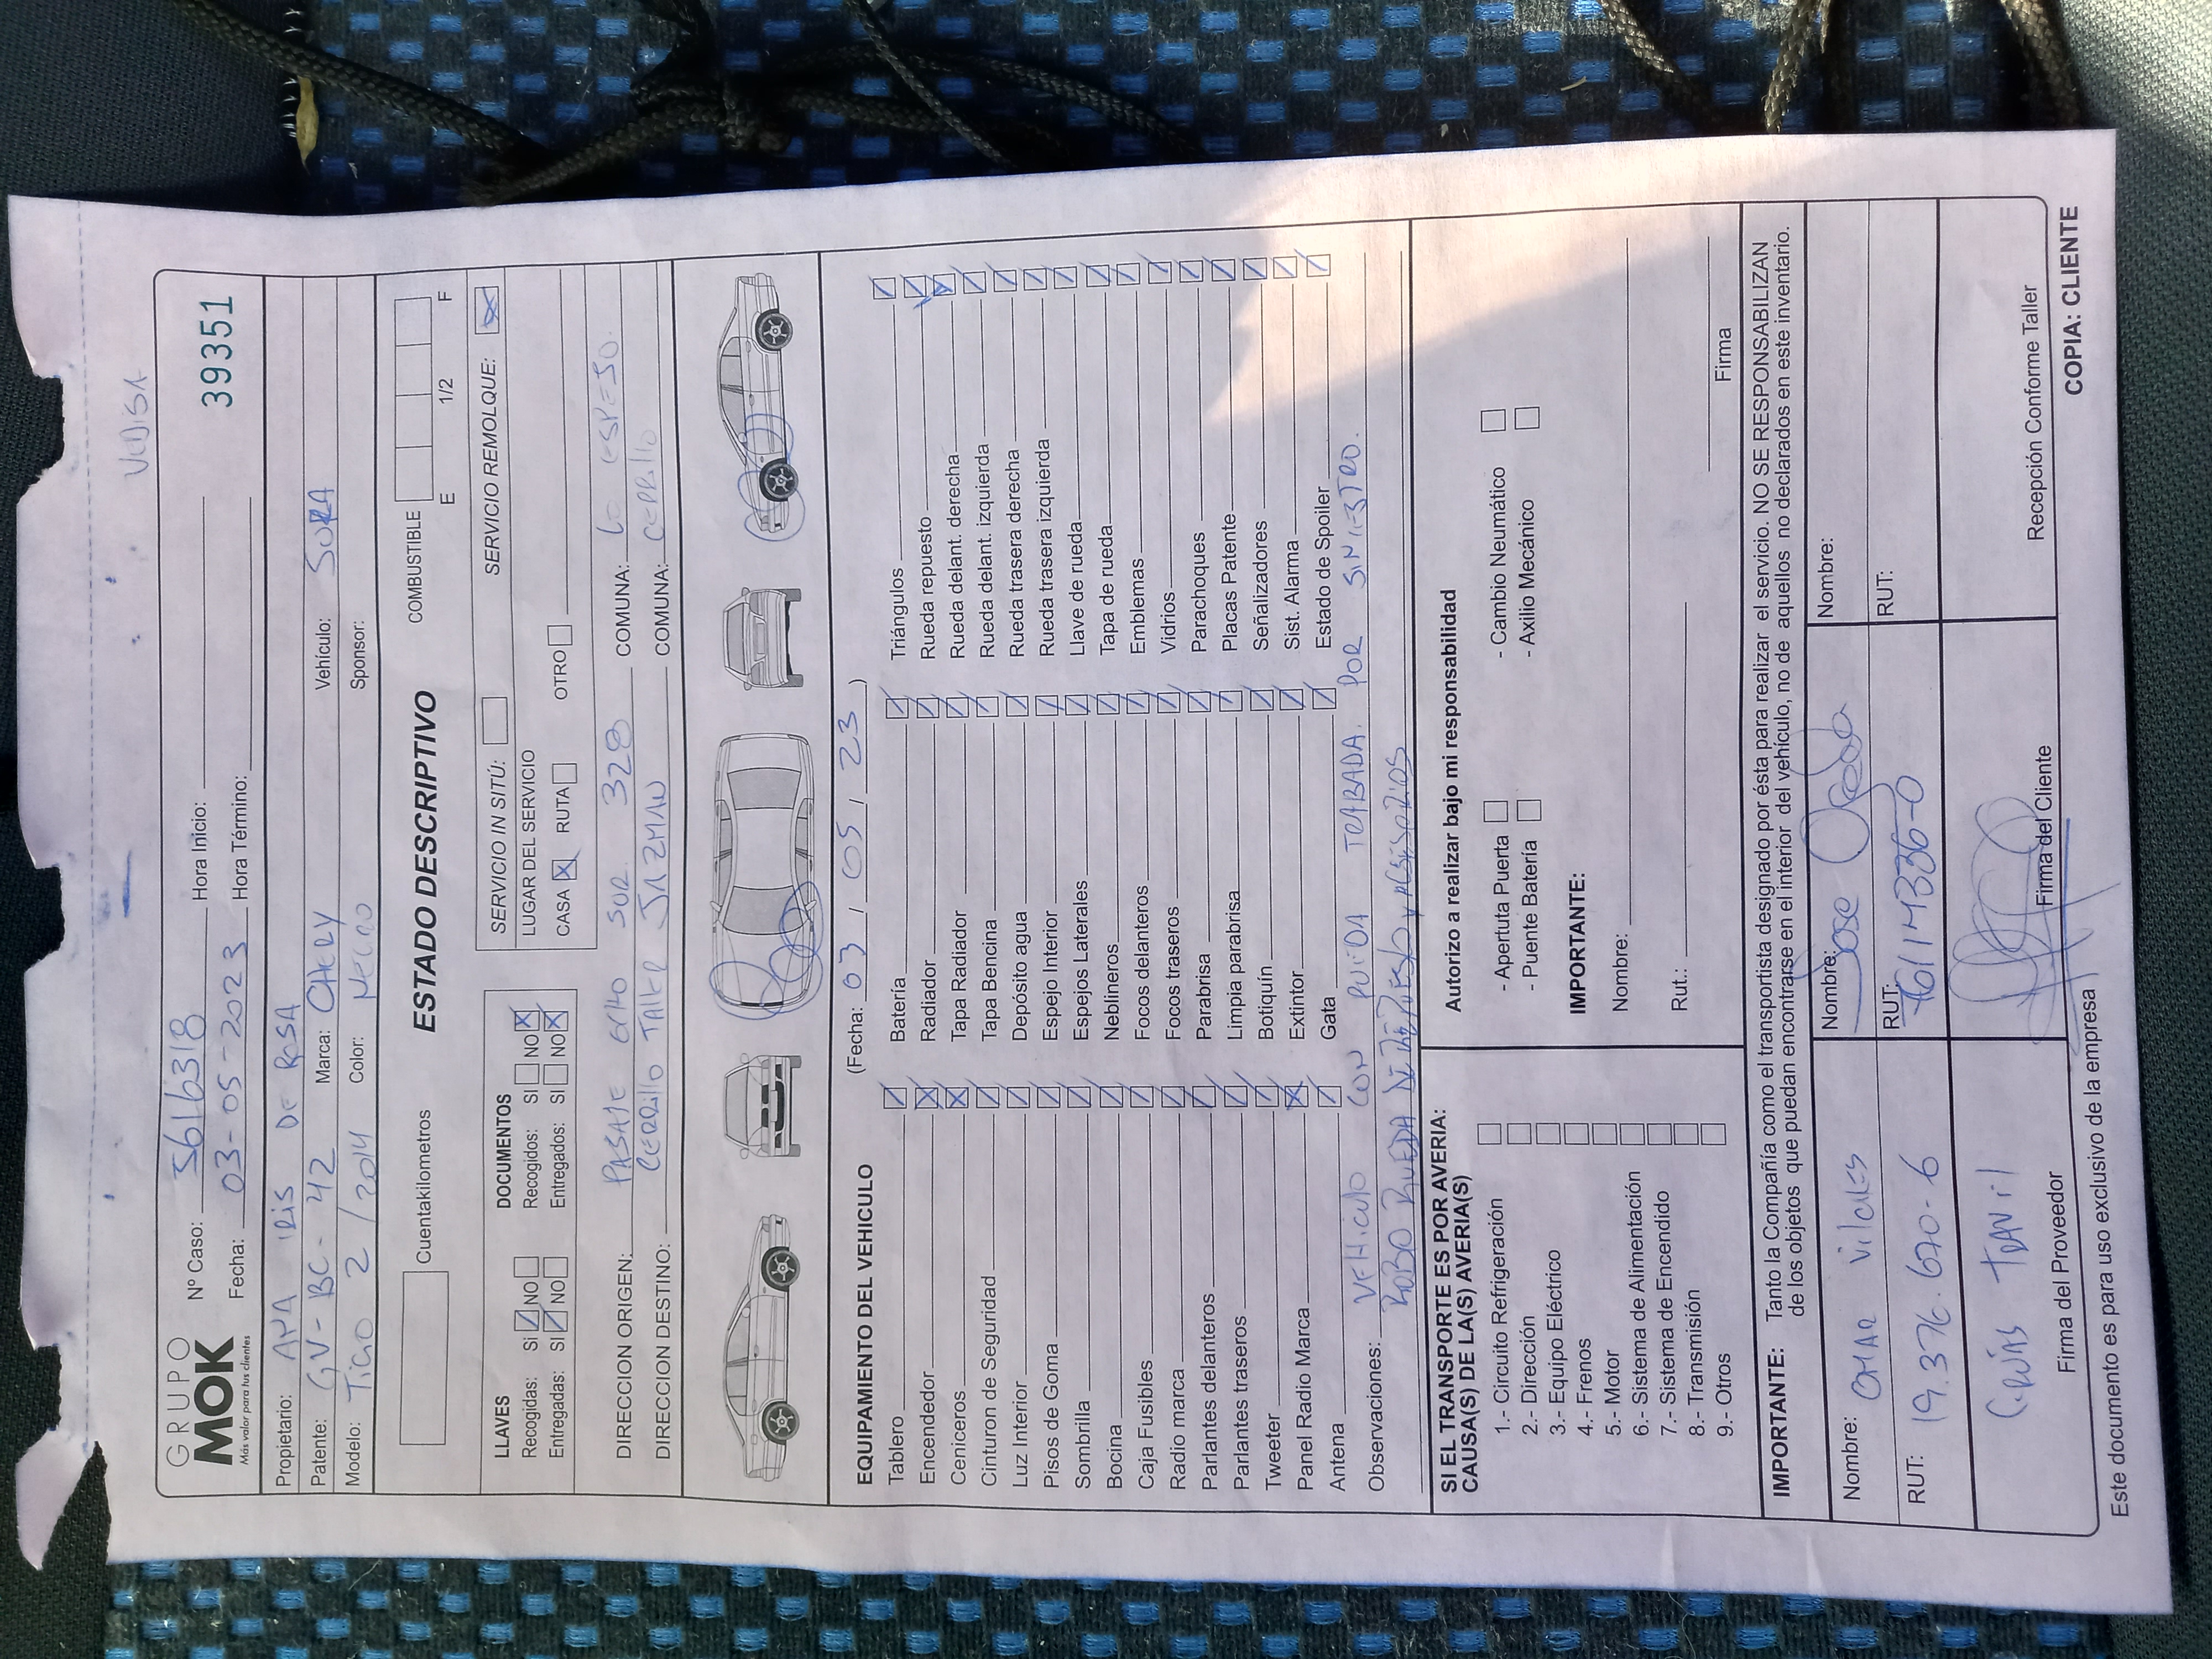 VEDISA
GRUPO
MOK
Más valor para tus clientes
Nº Caso: 5616318 Hora Inicio:
39351
Fecha: 03-05-2023 Hora Término:
Propietario: ANA IRIS DE ROSA
Patente: GV-BC-42 Marca: CHERY Vehículo: SURA
Modelo: TIGO 2 / 2014 Color: NEGRO Sponsor:
Cuentakilometros ESTADO DESCRIPTIVO COMBUSTIBLE
E 1/2 F
LLAVES DOCUMENTOS SERVICIO IN SITÚ: SERVICIO REMOLQUE: X
Recogidas: Si / NO Recogidos: SI NO X LUGAR DEL SERVICIO
Entregadas: SI / NO Entregados: SI NO X CASA X RUTA OTRO
DIRECCION ORIGEN: PASAJE SUR 328 COMUNA:
DIRECCION DESTINO: CERRILLO TALLER JAZMAN COMUNA: CERRILLO
EQUIPAMIENTO DEL VEHICULO (Fecha: 03 / 05 / 23)
Tablero / Batería / Triángulos /
Encendedor X Radiador / Rueda repuesto /
Ceniceros X Tapa Radiador / Rueda delant. derecha X
Cinturon de Seguridad / Tapa Bencina / Rueda delant. izquierda /
Luz Interior / Depósito agua / Rueda trasera derecha /
Pisos de Goma / Espejo Interior / Rueda trasera izquierda /
Sombrilla / Espejos Laterales / Llave de rueda /
Bocina / Neblineros / Tapa de rueda /
Caja Fusibles / Focos delanteros / Emblemas /
Radio marca / Focos traseros / Vidrios /
Parlantes delanteros / Parabrisa / Parachoques /
Parlantes traseros / Limpia parabrisa / Placas Patente /
Tweeter / Botiquín / Señalizadores /
Panel Radio Marca X Extintor / Sist. Alarma /
Antena / Gata / Estado de Spoiler /
Observaciones: VEHICULO CON TRABADA. POR SINIESTRO.
ROBO RUEDA DE REPUESTO y ACSISORIOS
SI EL TRANSPORTE ES POR AVERIA:
CAUSA(S) DE LA(S) AVERIA(S)
1.- Circuito Refrigeración
2.- Dirección
3.- Equipo Eléctrico
4.- Frenos
5.- Motor
6.- Sistema de Alimentación
7.- Sistema de Encendido
8.- Transmisión
9.- Otros
Autorizo a realizar bajo mi responsabilidad
- Apertuta Puerta - Cambio Neumático
- Puente Batería - Axilio Mecánico
IMPORTANTE:
Nombre:
Rut.: Firma
IMPORTANTE: Tanto la Compañía como el transportista designado por ésta para realizar el servicio. NO SE RESPONSABILIZAN
de los objetos que puedan encontrarse en el interior del vehículo, no de aquellos no declarados en este inventario.
Nombre: OMAR Vilches Nombre: Jose Ojeda Nombre:
RUT: 19.376.670-6 RUT: 16114336-0 RUT:
Firma del Proveedor Firma del Cliente Recepción Conforme Taller
Este documento es para uso exclusivo de la empresa COPIA: CLIENTE